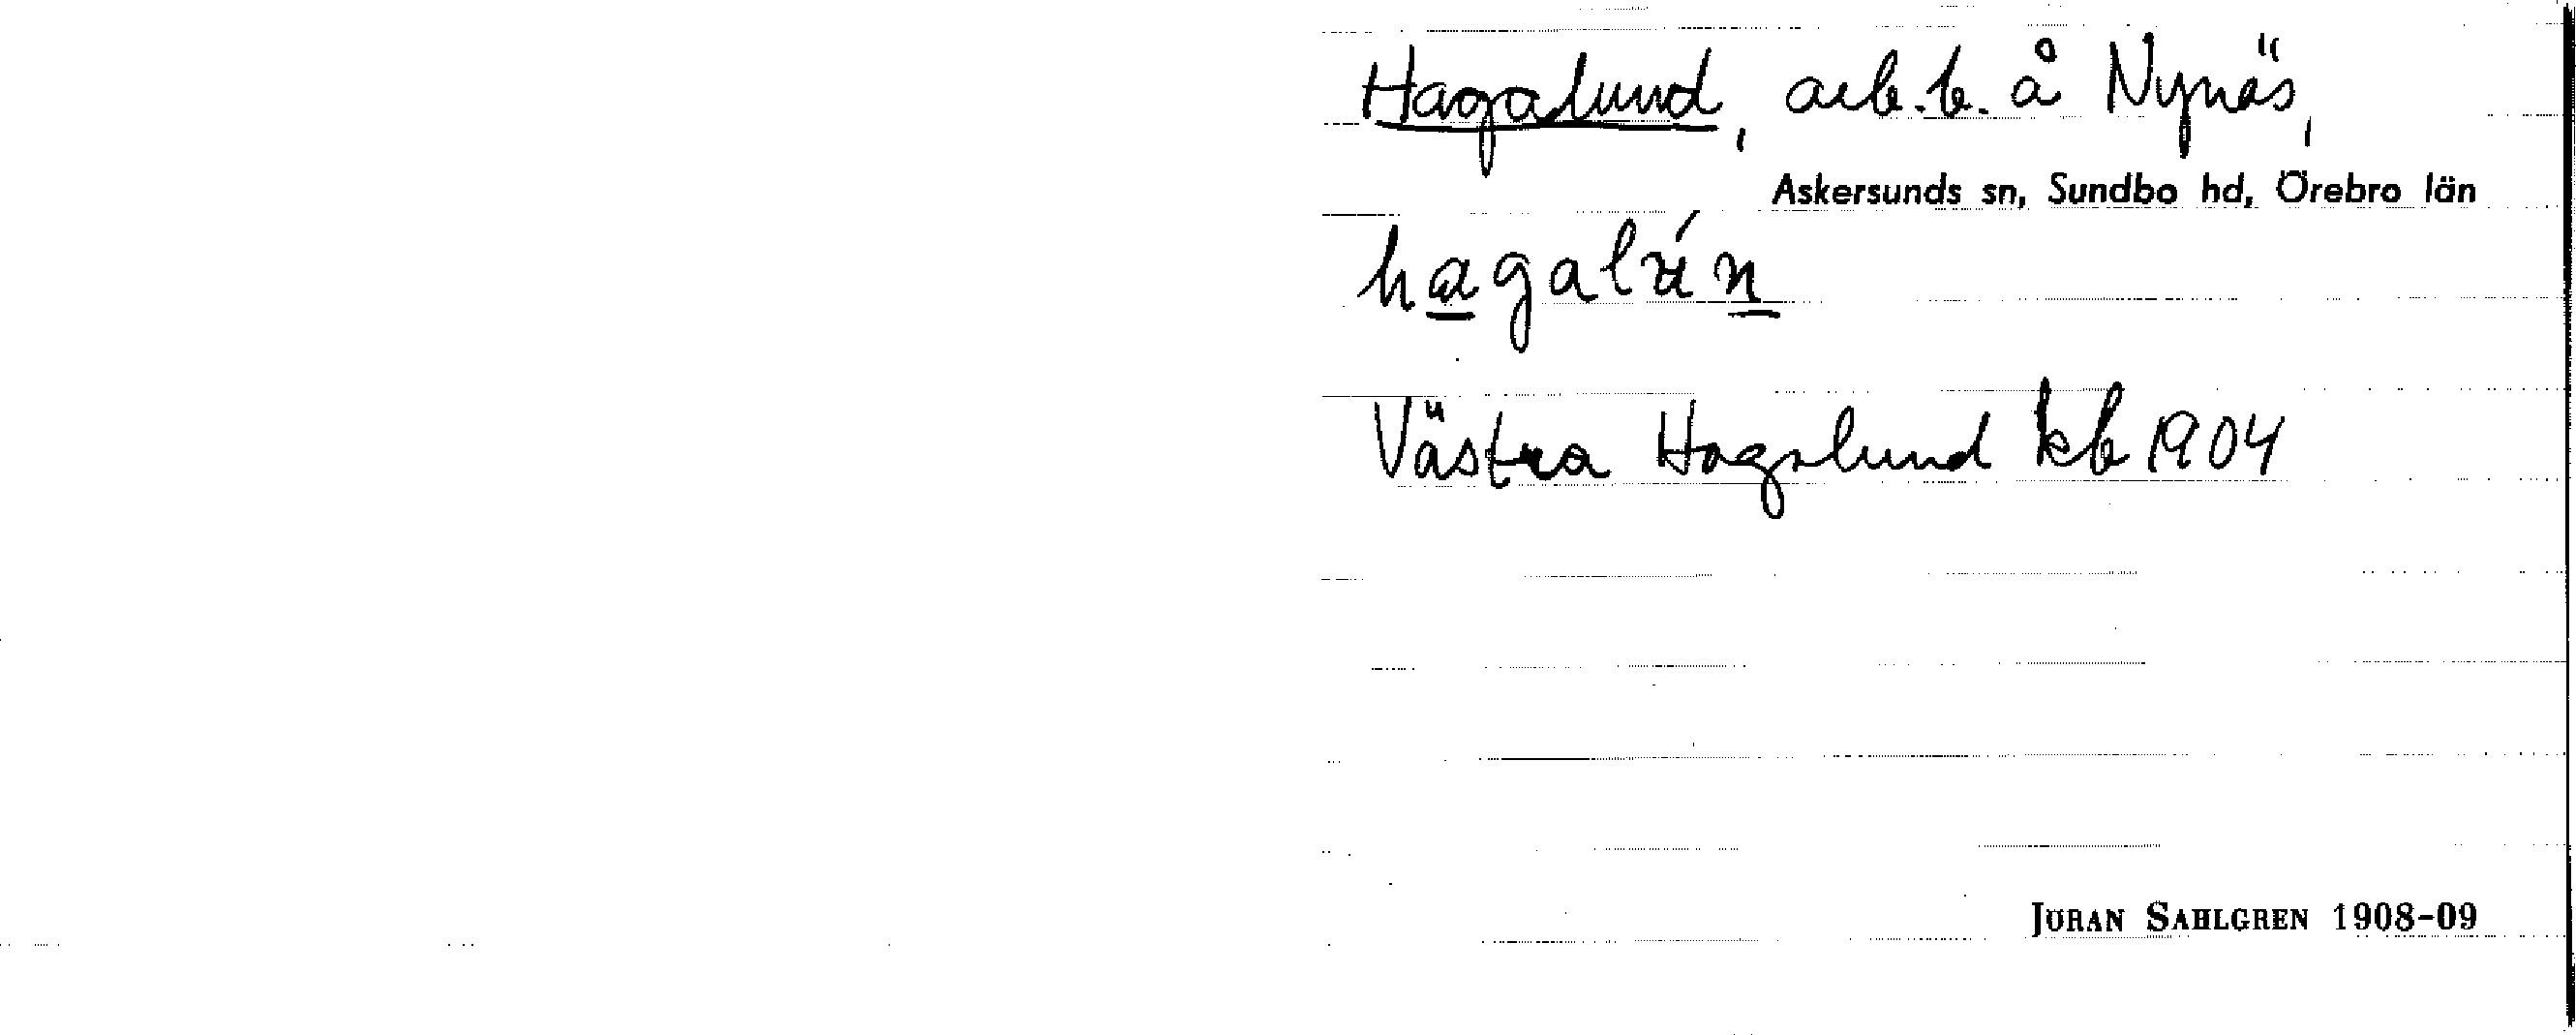 Hagalund, arb.b. å Nynäs,
Askersunds sn, Sundbo hd, Örebro län
Västra Hagalund kb 1904
JÖRAN SAHLGREN 1908-09